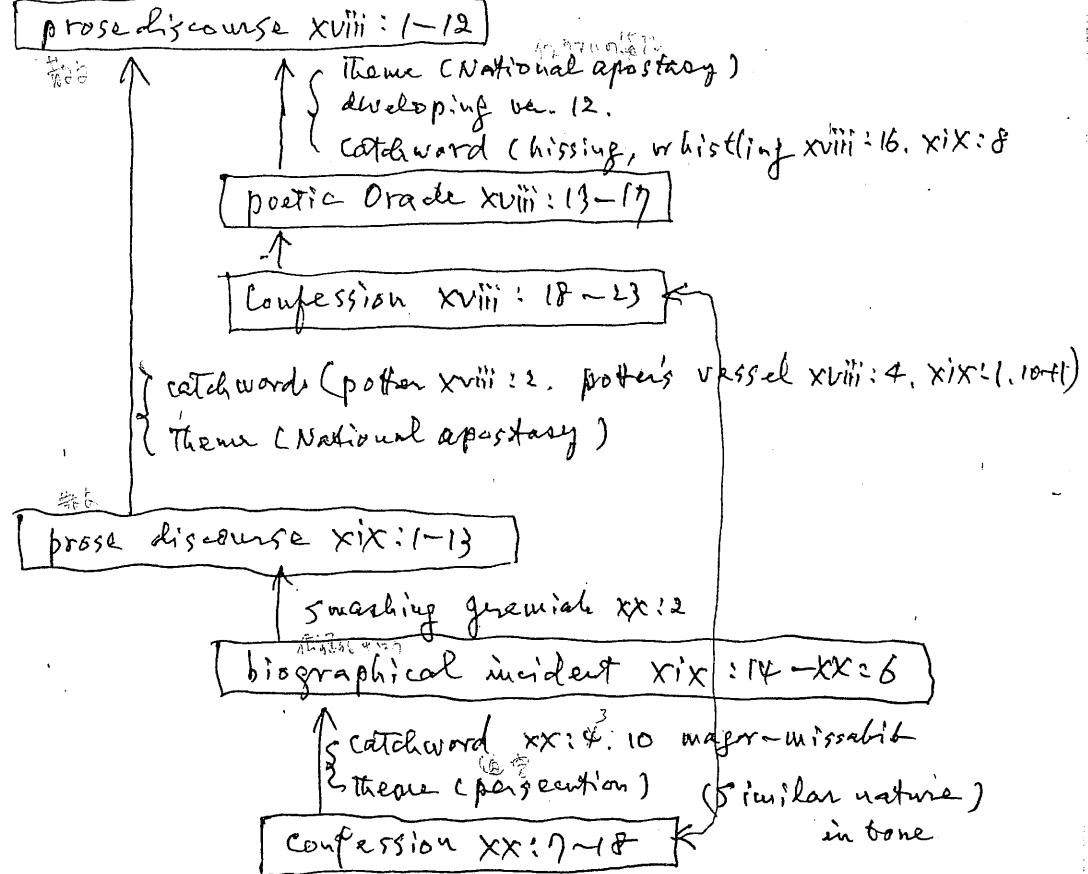 prose discourse xviii : 1–12
Theme (National apostasy)
developing ver. 12.
catchward (hissing, whistling xviii : 16. xix : 8
poetic Oracle xviii : 13–17
Confession xviii : 18~23
catchwords (potter xviii : 2. potter's vessel xviii : 4. xix : 1. 10+11)
Theme (National apostasy)
prose discourse xix : 1–13
smashing Jeremiah xx : 2
biographical incident xix : 14 – xx : 6
catchword xx : 3. 10 magor-missabib
theme (persecution)
(Similar nature)
in tone
confession xx : 7~18